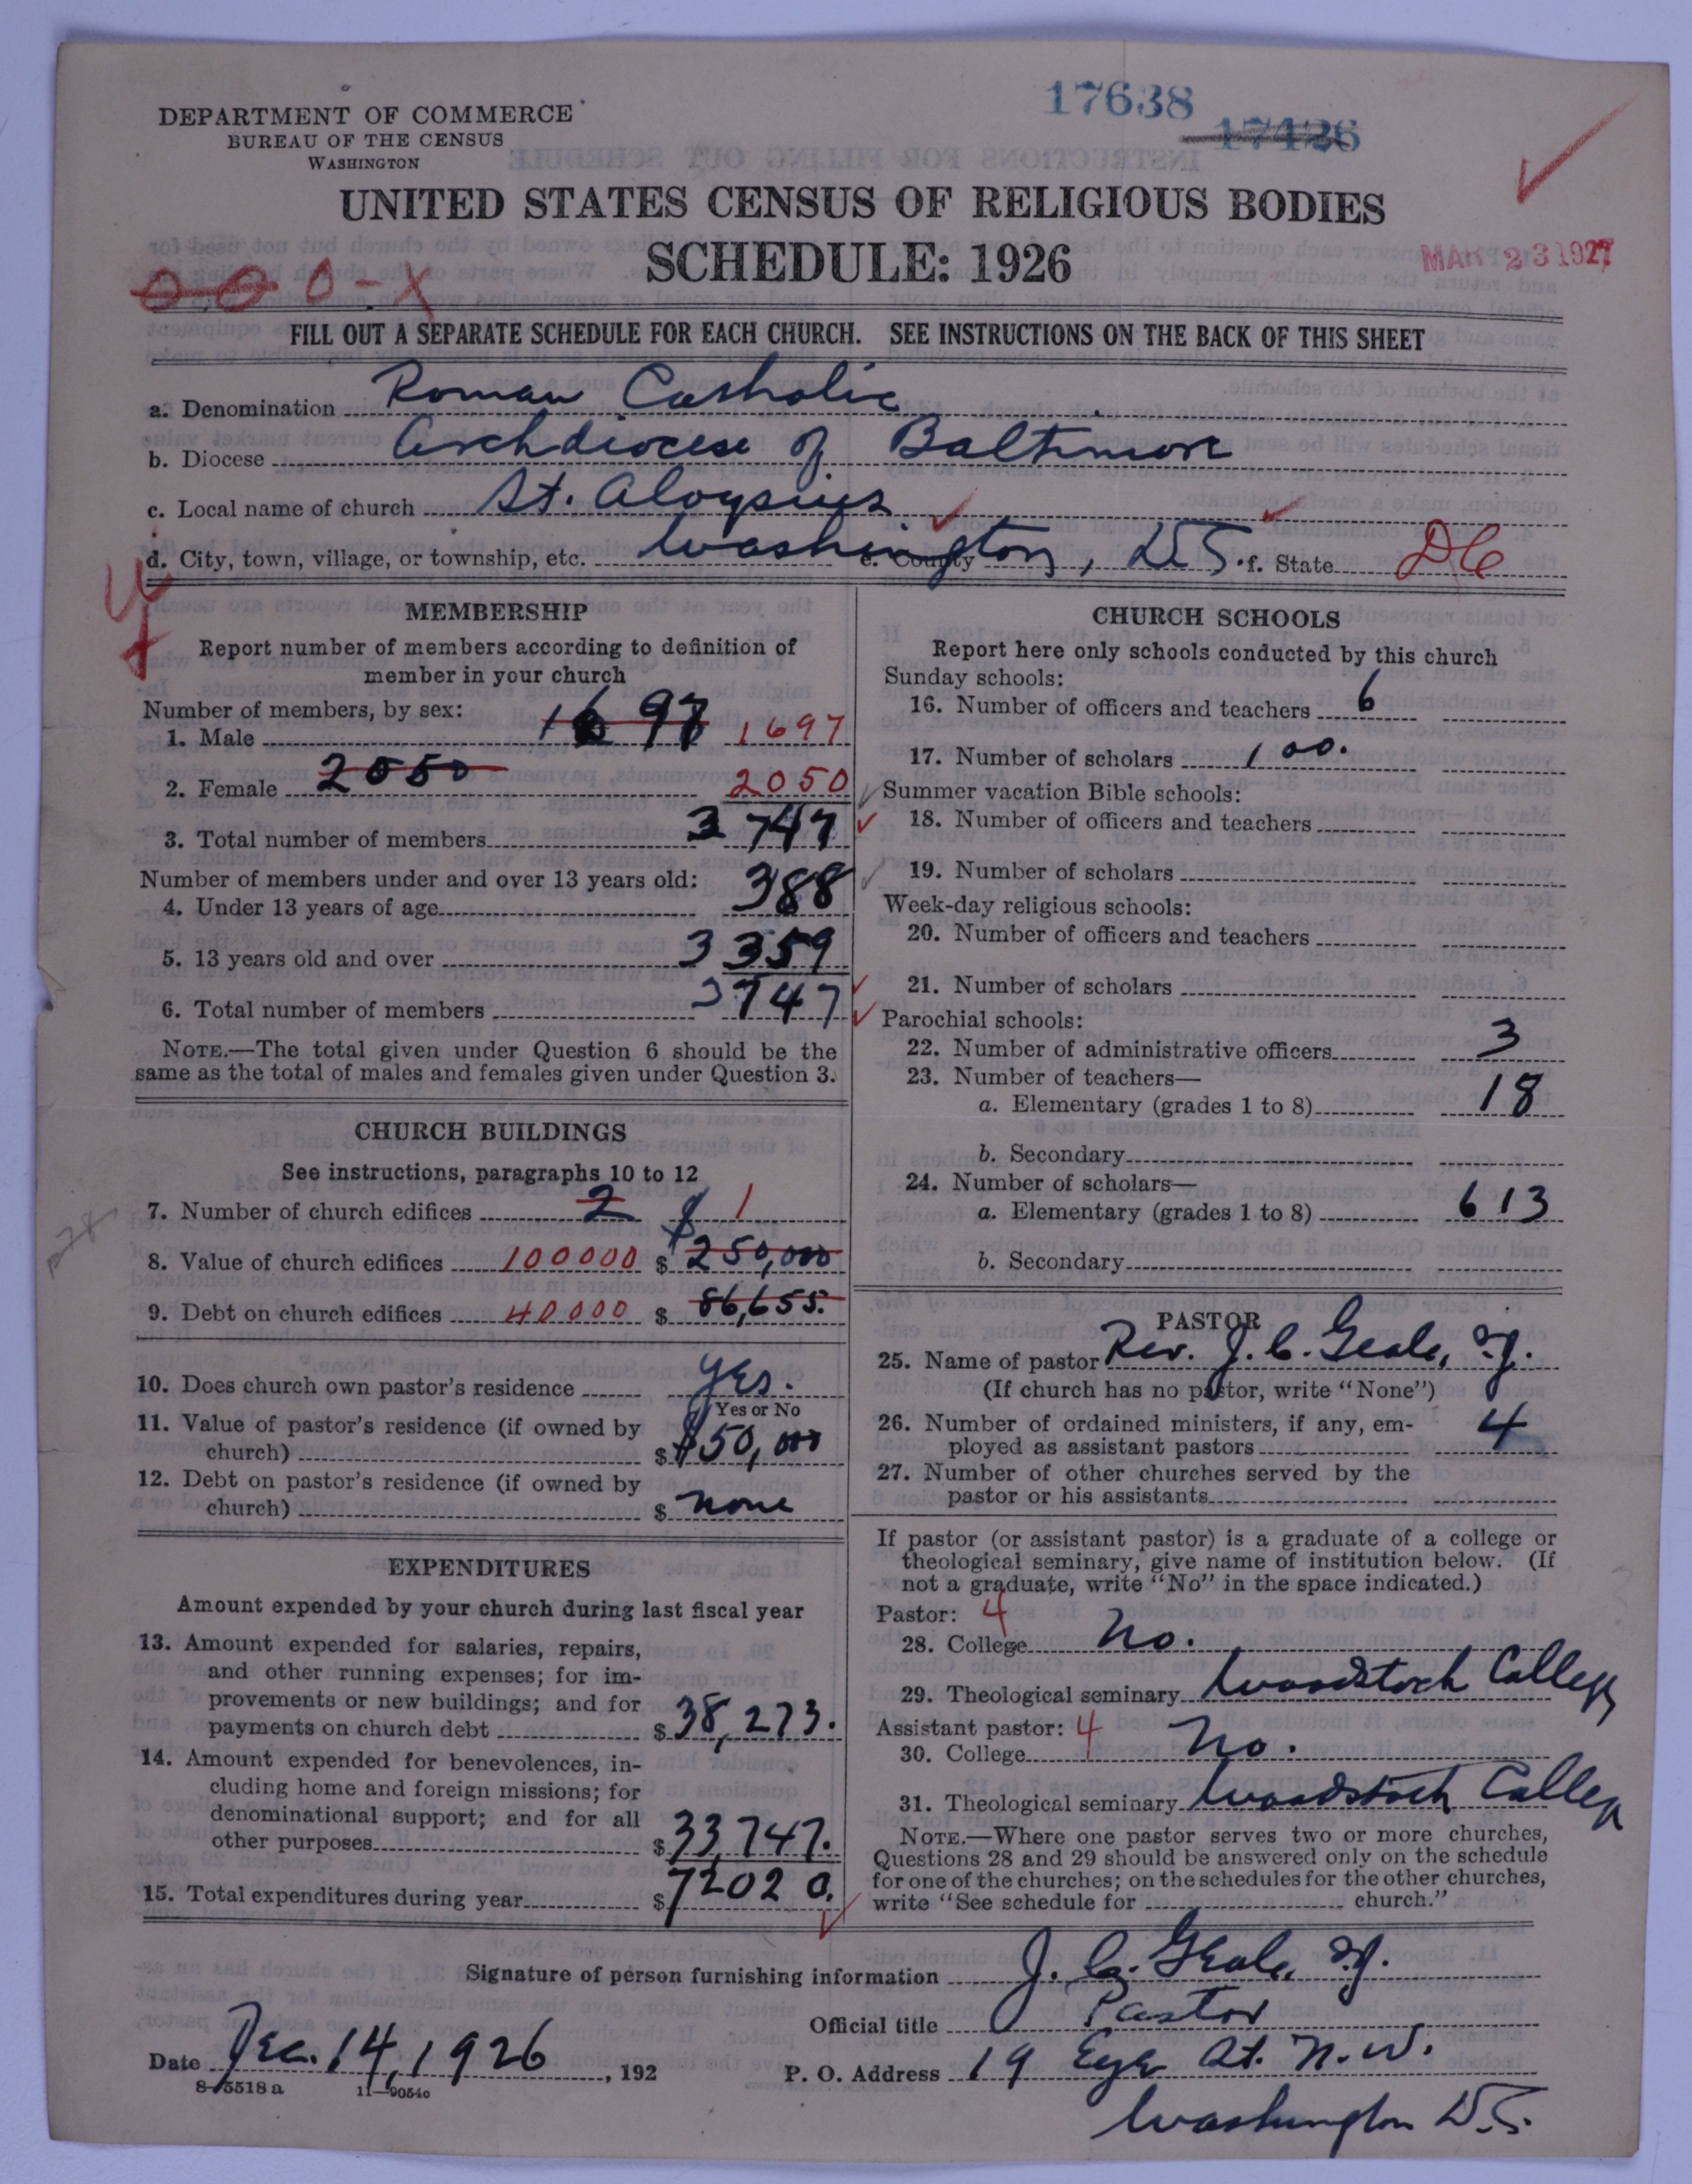 17638
17426
DEPARTMENT OF COMMERCE
BUREAU OF THE CENSUS
WASHINGTON
UNITED STATES CENSUS OF RELIGIOUS BODIES
SCHEDULE: 1926
MAR 23 1927
0 0 0 - X
FILL OUT A SEPARATE SCHEDULE FOR EACH CHURCH. SEE INSTRUCTIONS ON THE BACK OF THIS SHEET
a. Denomination Roman Catholic
b. Diocese Archdiocese of Baltimore
c. Local name of church St. Aloysius
d. City, town, village, or township, etc. Washington, D.C. e. County f. State DC
MEMBERSHIP
Report number of members according to definition of
member in your church
Number of members, by sex:
1. Male 1697 1697
2. Female 2050 2050
3. Total number of members 3747
Number of members under and over 13 years old:
4. Under 13 years of age 388
5. 13 years old and over 3359
6. Total number of members 3747
NOTE.—The total given under Question 6 should be the
same as the total of males and females given under Question 3.
CHURCH BUILDINGS
See instructions, paragraphs 10 to 12
7. Number of church edifices 2 1
8. Value of church edifices 100000 $ 250,000
9. Debt on church edifices 40000 $ 86,655.
10. Does church own pastor's residence yes.
Yes or No
11. Value of pastor's residence (if owned by
church) $ $50,000
12. Debt on pastor's residence (if owned by
church) $ none
EXPENDITURES
Amount expended by your church during last fiscal year
13. Amount expended for salaries, repairs,
and other running expenses; for im-
provements or new buildings; and for
payments on church debt $ 38,273.
14. Amount expended for benevolences, in-
cluding home and foreign missions; for
denominational support; and for all
other purposes $ 33,747.
15. Total expenditures during year $ 72020.
CHURCH SCHOOLS
Report here only schools conducted by this church
Sunday schools:
16. Number of officers and teachers 6
17. Number of scholars 100.
Summer vacation Bible schools:
18. Number of officers and teachers
19. Number of scholars
Week-day religious schools:
20. Number of officers and teachers
21. Number of scholars
Parochial schools:
22. Number of administrative officers 3
23. Number of teachers—
a. Elementary (grades 1 to 8) 18
b. Secondary
24. Number of scholars—
a. Elementary (grades 1 to 8) 613
b. Secondary
PASTOR
25. Name of pastor Rev. J. C. Geale, S.J.
(If church has no pastor, write "None")
26. Number of ordained ministers, if any, em-
ployed as assistant pastors 4
27. Number of other churches served by the
pastor or his assistants
If pastor (or assistant pastor) is a graduate of a college or
theological seminary, give name of institution below. (If
not a graduate, write "No" in the space indicated.)
Pastor: 4
28. College No.
29. Theological seminary Woodstock College
Assistant pastor: 4
30. College No.
31. Theological seminary Woodstock College
NOTE.—Where one pastor serves two or more churches,
Questions 28 and 29 should be answered only on the schedule
for one of the churches; on the schedules for the other churches,
write "See schedule for church."
Signature of person furnishing information J. C. Geale, S.J.
Official title Pastor
Date Dec. 14, 1926, 192
P. O. Address 19 Eye St. N.W.
Washington D.C.
8-5518 a 11—9054c